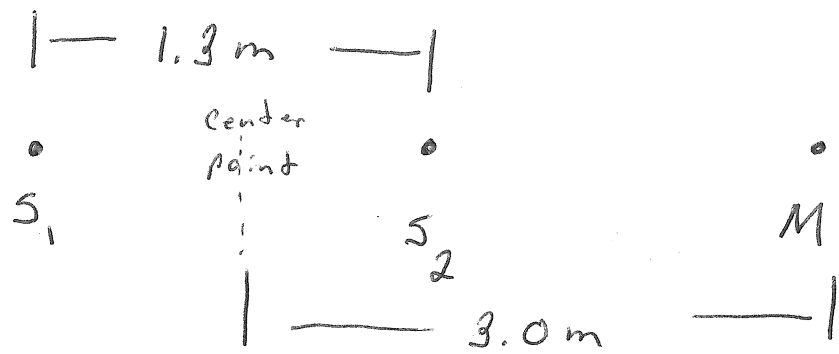 1.3 m
center
point
S₁
S₂
M
3.0 m